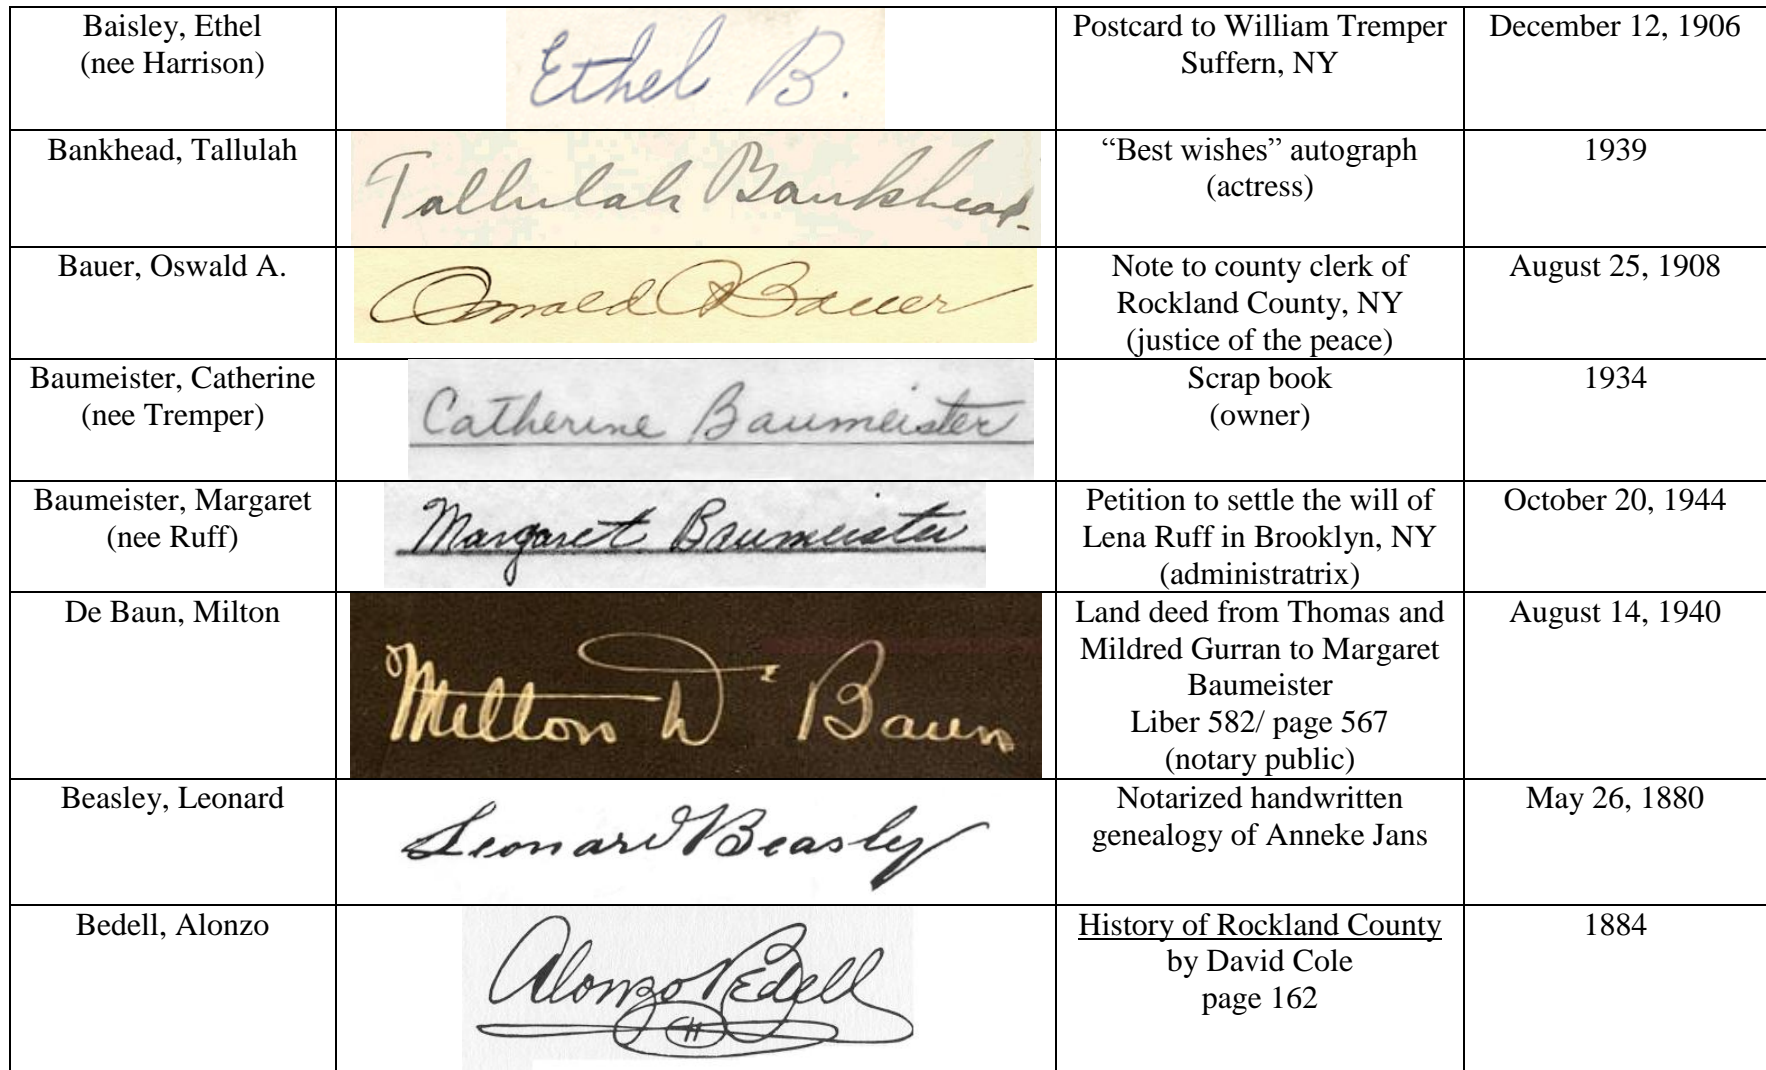 Baisley, Ethel
(nee Harrison)
Ethel B.
Postcard to William Tremper
Suffern, NY
December 12, 1906
Bankhead, Tallulah
Tallulah Bankhead.
“Best wishes” autograph
(actress)
1939
Bauer, Oswald A.
Oswald A Bauer
Note to county clerk of
Rockland County, NY
(justice of the peace)
August 25, 1908
Baumeister, Catherine
(nee Tremper)
Catherine Baumeister
Scrap book
(owner)
1934
Baumeister, Margaret
(nee Ruff)
Margaret Baumeister
Petition to settle the will of
Lena Ruff in Brooklyn, NY
(administratrix)
October 20, 1944
De Baun, Milton
Milton D' Baun
Land deed from Thomas and
Mildred Gurran to Margaret
Baumeister
Liber 582/ page 567
(notary public)
August 14, 1940
Beasley, Leonard
Leonard Beasley
Notarized handwritten
genealogy of Anneke Jans
May 26, 1880
Bedell, Alonzo
Alonzo Bedell
History of Rockland County
by David Cole
page 162
1884